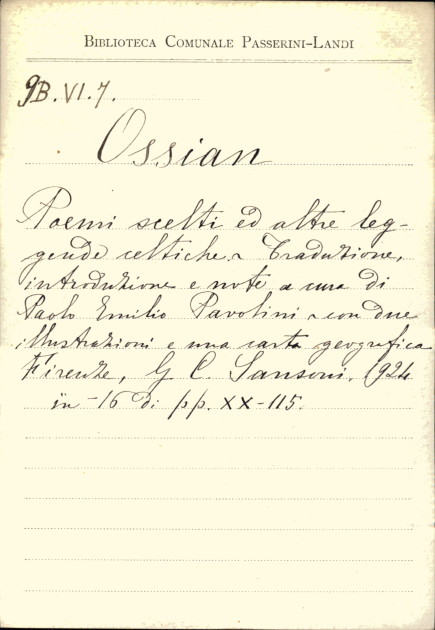 BIBLIOTECA COMUNALE PASSERINI-LANDI
9B.VI.7.
Ossian
Poemi scelti ed altre leg-
gende celtiche ~ Traduzione,
introduzione e note a cura di
Paolo Emilio Pavolini ~ con due
illustrazioni e una carta geografica
Firenze, G C. Sansoni. 1924
in -16 di pp. XX-115.